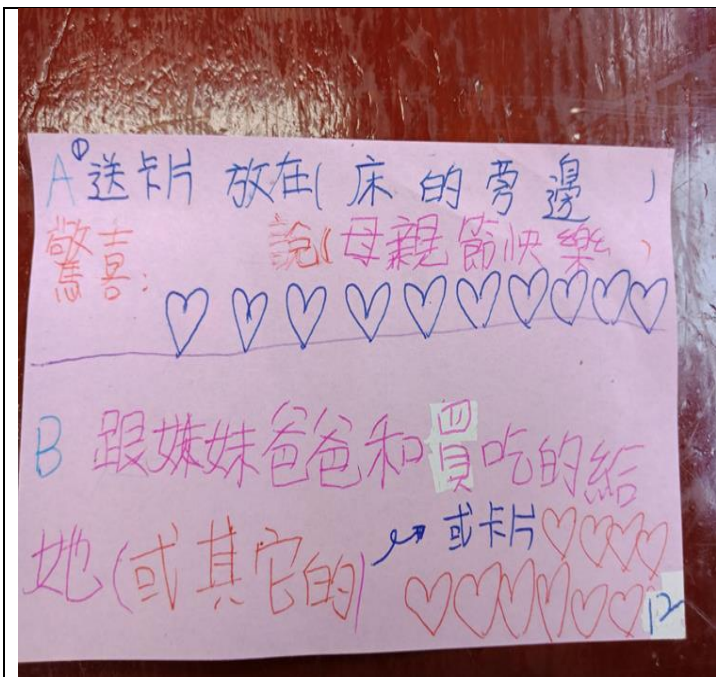 A①送卡片 放在(床的旁邊 )
驚喜: 說(母親節快樂 )
B 跟妹妹爸爸和買吃的給
她(或其它的) 或卡片
12